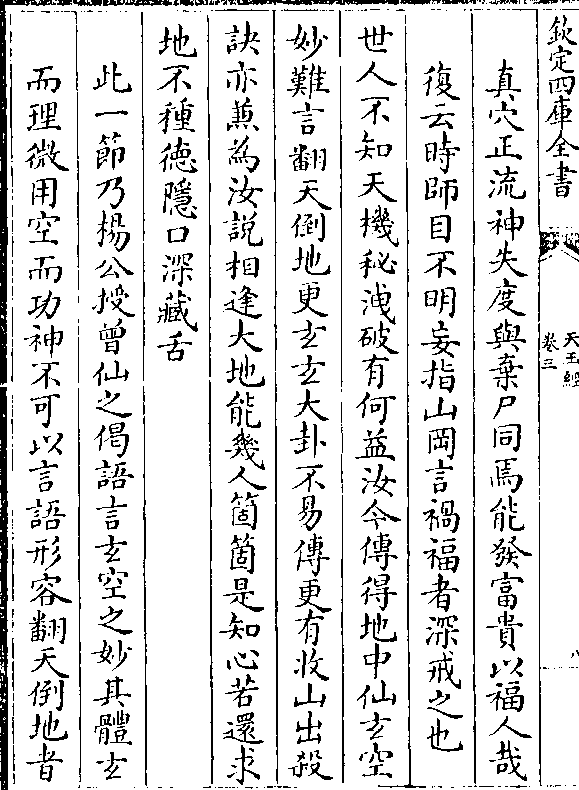 欽定四庫全書
天玉經
卷三
八
真穴正流神失度與棄尸同焉能發富貴以福人哉
復云時師目不明妄指山岡言禍福者深戒之也
世人不知天機秘洩破有何益汝今傳得地中仙玄空
妙難言翻天倒地更玄玄大卦不易傳更有收山出殺
訣亦兼為汝說相逢大地能幾人箇箇是知心若還求
地不種德隱口深藏舌
此一節乃楊公授曾仙之偈語言玄空之妙其體玄
而理微用空而功神不可以言語形容翻天倒地者